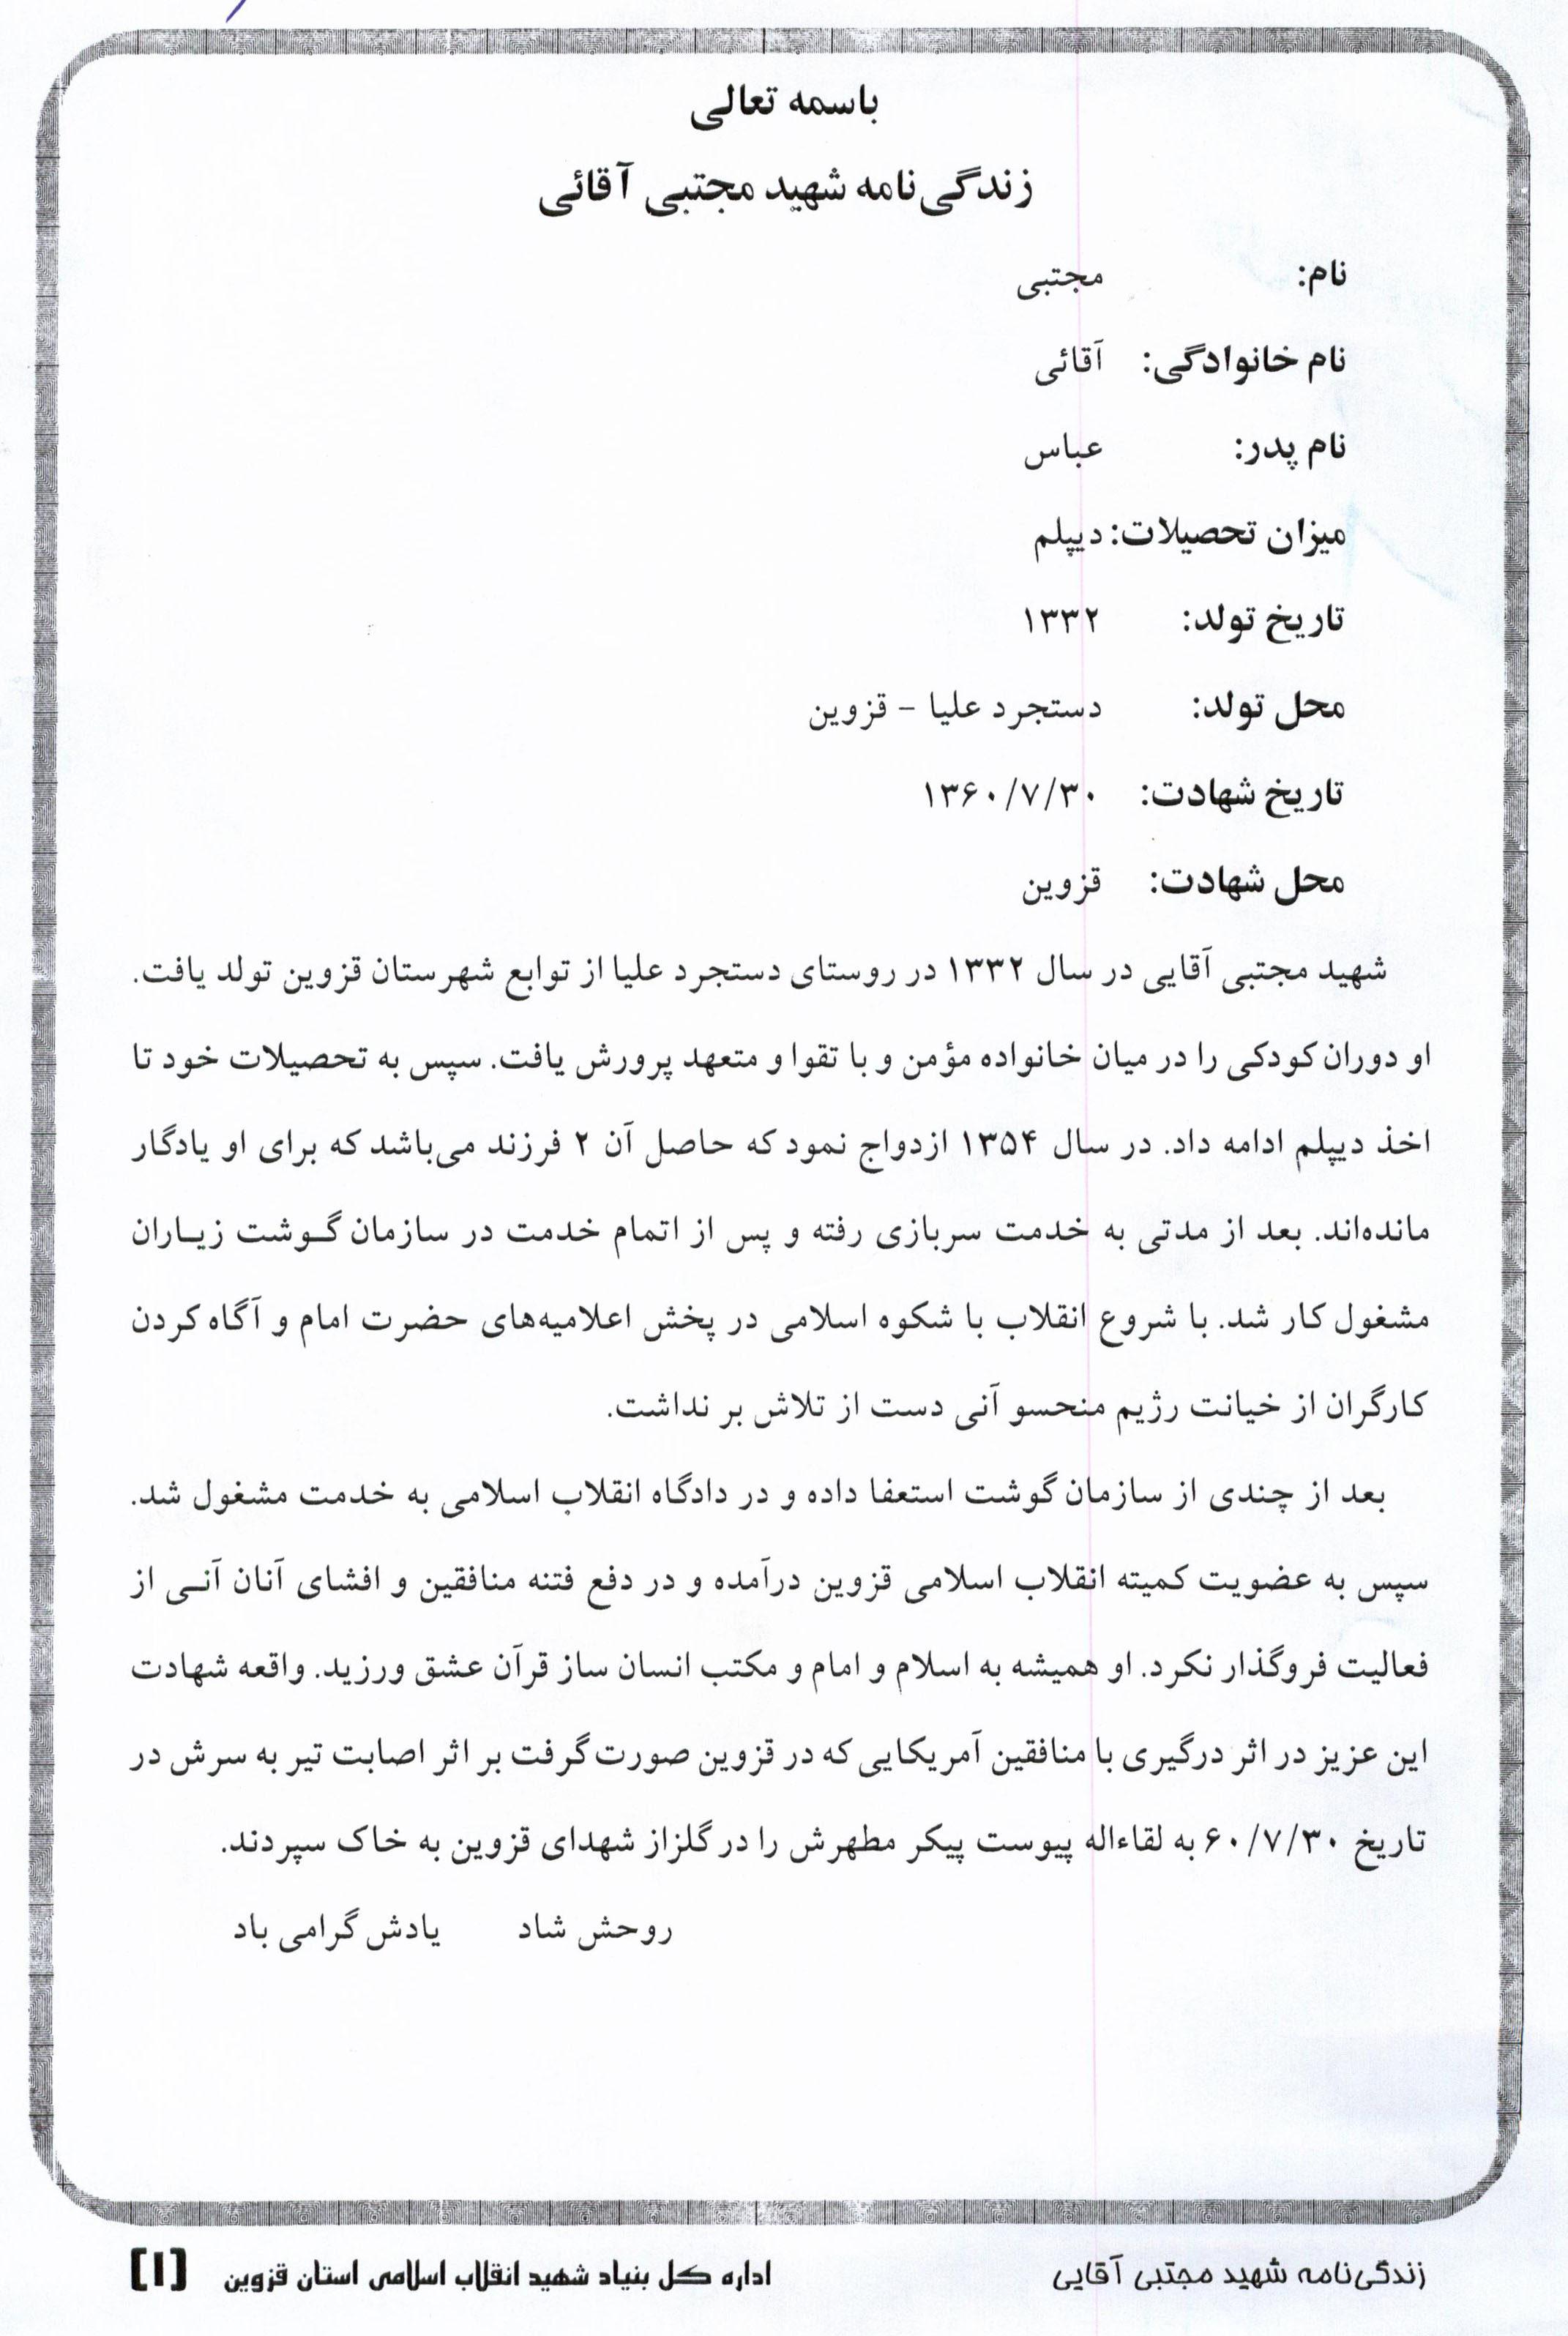 باسمه تعالی
زندگی‌نامه شهید مجتبی آقائی
نام: مجتبی
نام خانوادگی: آقائی
نام پدر: عباس
میزان تحصیلات: دیپلم
تاریخ تولد: ۱۳۳۲
محل تولد: دستجرد علیا - قزوین
تاریخ شهادت: ۱۳۶۰/۷/۳۰
محل شهادت: قزوین
شهید مجتبی آقایی در سال ۱۳۳۲ در روستای دستجرد علیا از توابع شهرستان قزوین تولد یافت.
او دوران کودکی را در میان خانواده مؤمن و با تقوا و متعهد پرورش یافت. سپس به تحصیلات خود تا
اخذ دیپلم ادامه داد. در سال ۱۳۵۴ ازدواج نمود که حاصل آن ۲ فرزند می‌باشد که برای او یادگار
مانده‌اند. بعد از مدتی به خدمت سربازی رفته و پس از اتمام خدمت در سازمان گـوشت زیـاران
مشغول کار شد. با شروع انقلاب با شکوه اسلامی در پخش اعلامیه‌های حضرت امام و آگاه کردن
کارگران از خیانت رژیم منحسو آنی دست از تلاش بر نداشت.
بعد از چندی از سازمان گوشت استعفا داده و در دادگاه انقلاب اسلامی به خدمت مشغول شد.
سپس به عضویت کمیته انقلاب اسلامی قزوین درآمده و در دفع فتنه منافقین و افشای آنان آنـی از
فعالیت فروگذار نکرد. او همیشه به اسلام و امام و مکتب انسان ساز قرآن عشق ورزید. واقعه شهادت
این عزیز در اثر درگیری با منافقین آمریکایی که در قزوین صورت گرفت بر اثر اصابت تیر به سرش در
تاریخ ۶۰/۷/۳۰ به لقاءاله پیوست پیکر مطهرش را در گلزاز شهدای قزوین به خاک سپردند.
روحش شاد یادش گرامی باد
زندگی‌نامه شهید مجتبی آقایی اداره کل بنیاد شهید انقلاب اسلامی استان قزوین [۱]